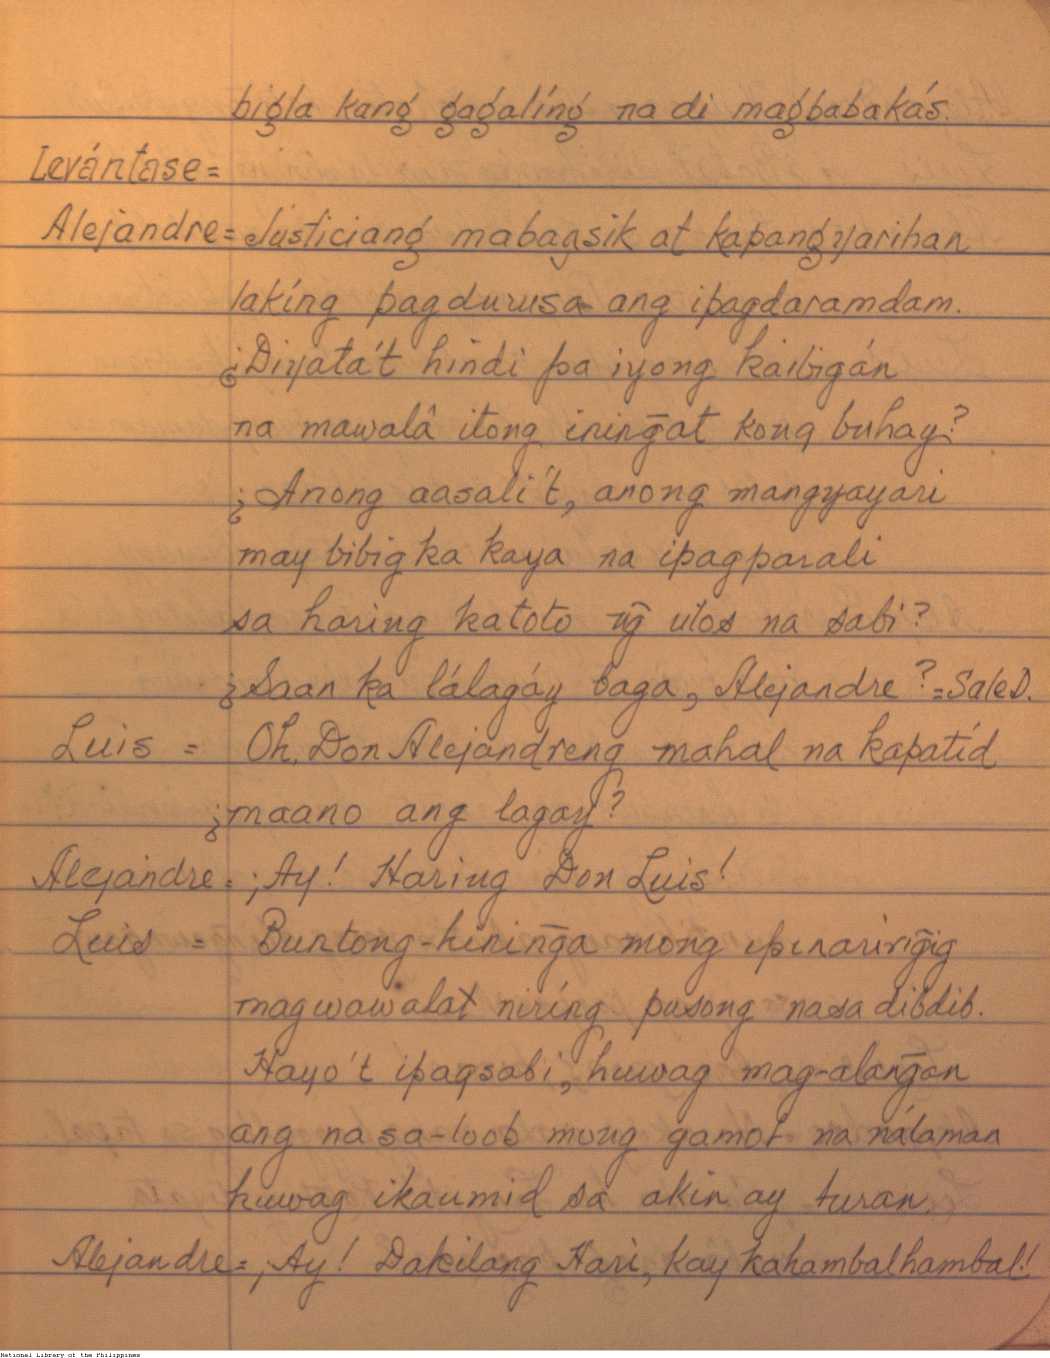 bigla kang gagalíng na di magbabakás.
Levántase=
Alejandre= Justiciang mabagsik at kapangyarihan
lakíng pagdurusa ang ipagdaramdam.
¿Diyata't hindi pa iyong káibigán
na mawalâ itong inin͠gat kong buhay?
¿Anong aasali't, anong mangyayari
may bibig ka kaya na ipagparali
sa haring katoto n͠g utos na sabi?
¿Saan ka lálagáy baga, Alejandre?=Sale D.
Luis = Oh, Don Alejandreng mahal na kapatíd
¿maano ang lagay?
Alejandre= ¡Ay! Haring Don Luis!
Luis = Buntong-hinin͠ga mong ipinarin͠gig
magwawalat niríng pusong nasa dibdib.
Hayo't ipagsabi, huwag mag-alan͠gan
ang na sa-loob mong gamot na nálaman
huwag ikaumid sa akin ay turan.
Alejandre= ¡Ay! Dakilang Hari, kay kahambalhambal!
National Library of the Philippines